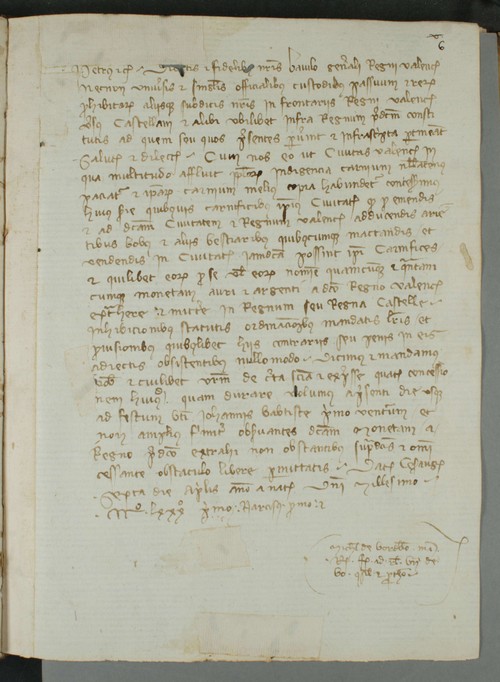 6
Petrus etc. Dilectis et fidelibus nostris baiulo generali Regni Valencie
Necnon universis et singulis officialibus custodibus passuum et rerum
prohibitarum aliisque subditis nostris in frontariis Regni Valencie
versus Castellam et alibi ubilibet infra Regnum predictum consti
tutis ad quem seu quos presentes pervenerint et infrascripta pertineant
Salutem et dileccionem Cum nos eo ut Civitas Valencie in
qua multitudo affluit indigencia carnium
carnium melius copia habundet concessimus
huius serie quibusvis carnificibus ipsius Civitatis quod pro emendis
et ad dictam Civitatem et Regnum Valencie adducendis arie
tibus bobus et aliis bestiariis quibuscumque mactandis et
vendendis in Civitate iamdicta possint ipsi Carnifices
et quilibet eorum per se vel eorum nomine quamcumque et quantam
cumque monetam auri et argenti a dicto Regno Valencie
extrahere et mittere in Regnum seu Regna Castelle
inhibicionibus statutis ordinacionibus mandatis literis et
provisionibus quibuslibet hiis contrariis seu penis in eis
adiectis obsistentibus nullomodo Dicimus et mandamus
vobis et cuilibet vestrum de certa sciencia et expresse quatenus concessio
nem huiusmodi quam durare volumus a presenti die usque
ad festum beati Iohannis babtiste primo venturum et
non amplius firmiter observantes dictam monetam a
Regno predicto extrahi non obstantibus supradictis et omni
cessante obstaculo libere permittatis Datum Cesarauguste
Sexta die Aprilis anno a nativitate Domini Millesimo
CCC LXXX primo Narcisus primo